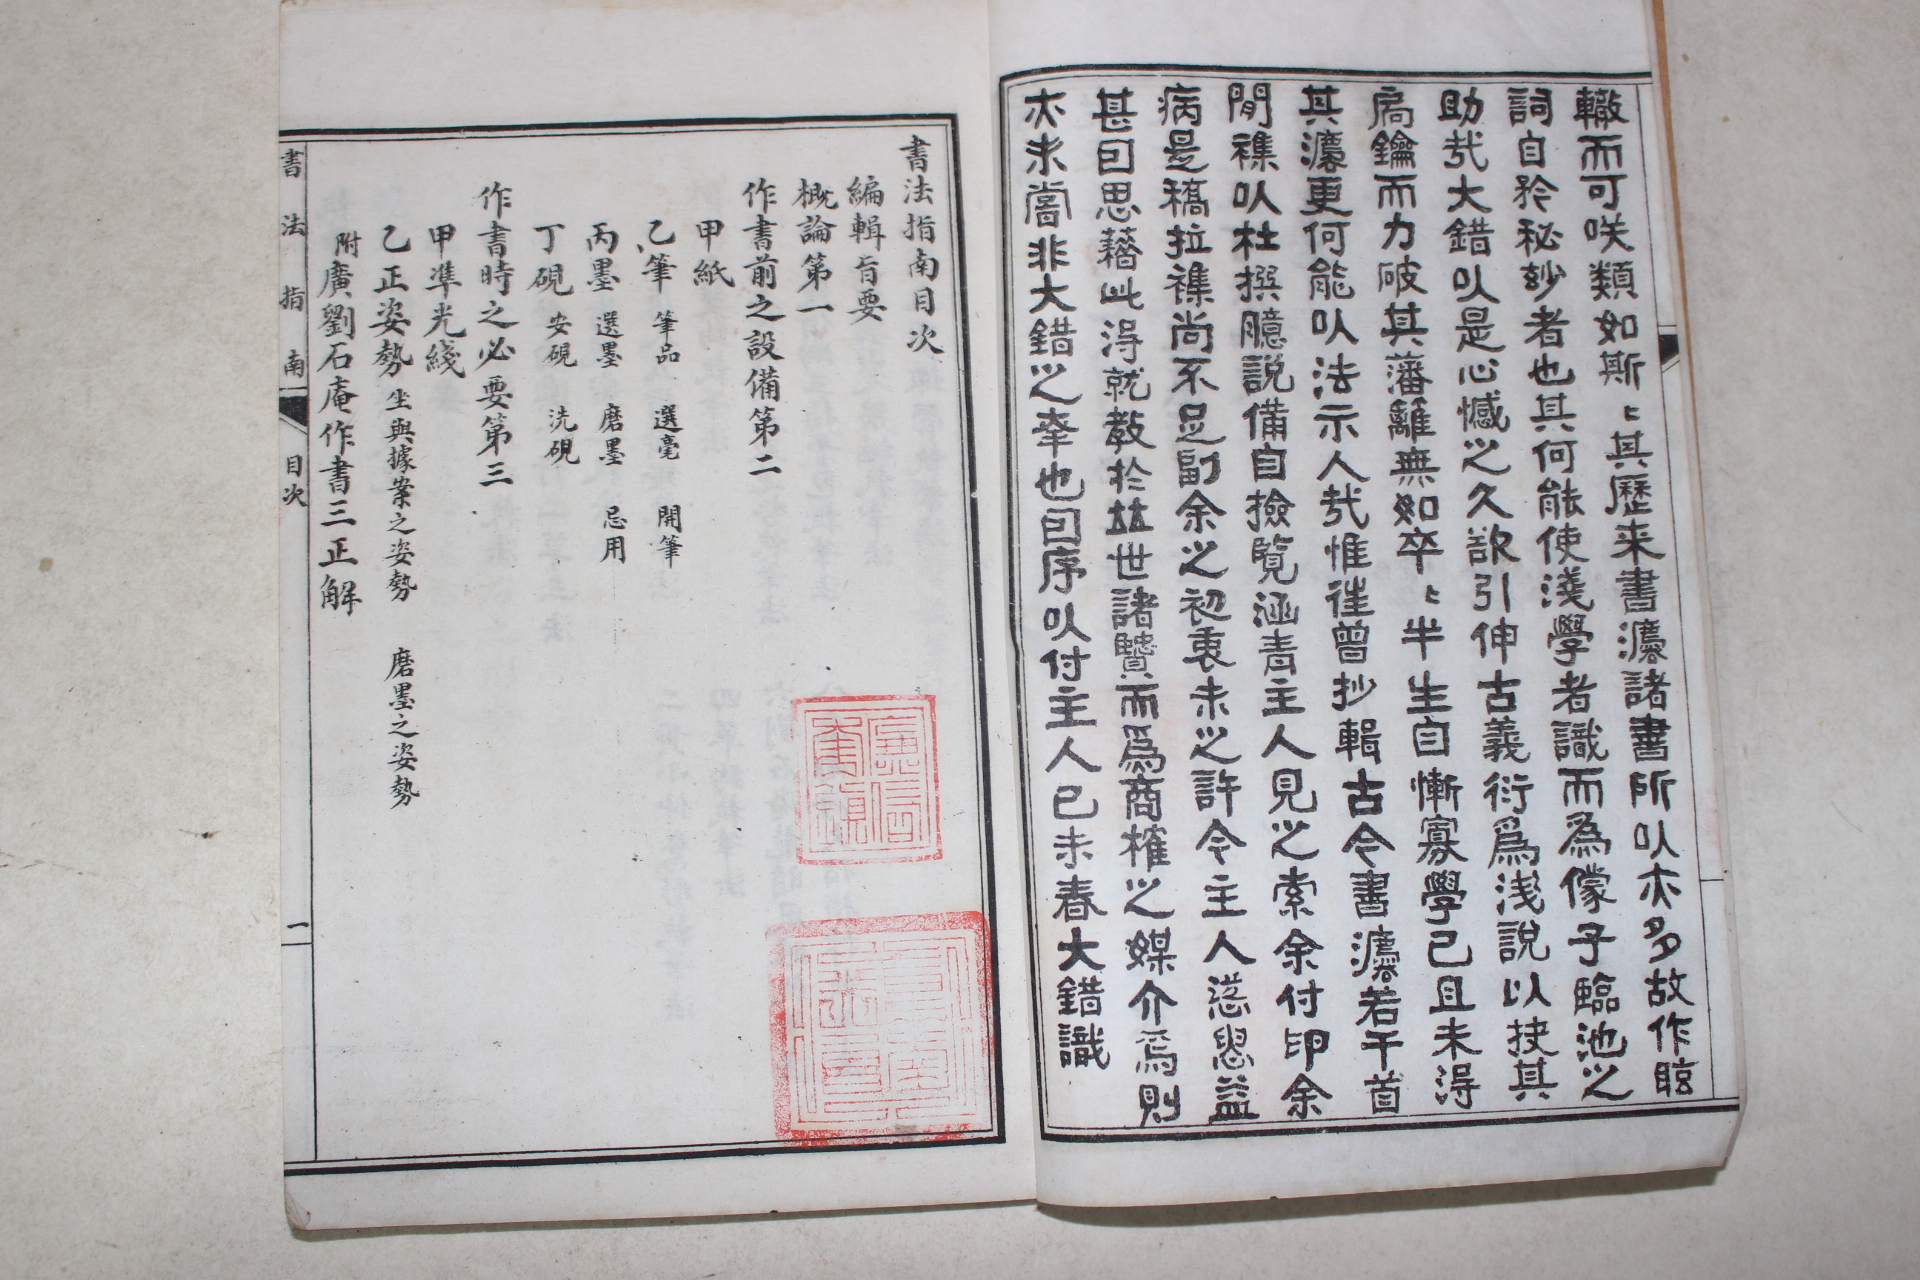 轍而可咲類如斯〻其歷来書灋諸書所㕥亦多故作眩
詞自矜秘妙者也其何能使淺學者識而為儚子臨池之
助㢤大錯以是心憾之久欲引伸古義衍爲浅說以抉其
扃鑰而力破其藩離無如卒〻半生自慚寡學已且未淂
其灋更何能㕥法示人㢤惟徃曾抄輯古今書灋若干首
閒襍㕥杜撰臆説備自撿覽涵青主人見之索余付印余
病是稿拉襍尚不足副余之初衷未之許今主人慫恿益
甚曰思藉此淂就教於竝世諸賢而爲商榷之媒介焉則
亦未嘗非大錯之幸也曰序㕥付主人己未春大錯識
書法指南目次
編輯旨要
概論第一
作書前之設備第二
甲紙
乙筆 筆品 選毫 開筆
丙墨 選墨 磨墨 忌用
丁硯 安硯 洗硯
作書時之必要第三
甲準光綫
乙正姿勢 坐與據案之姿勢 磨墨之姿勢
附廣劉石庵作書三正解
書法指南 目次 一